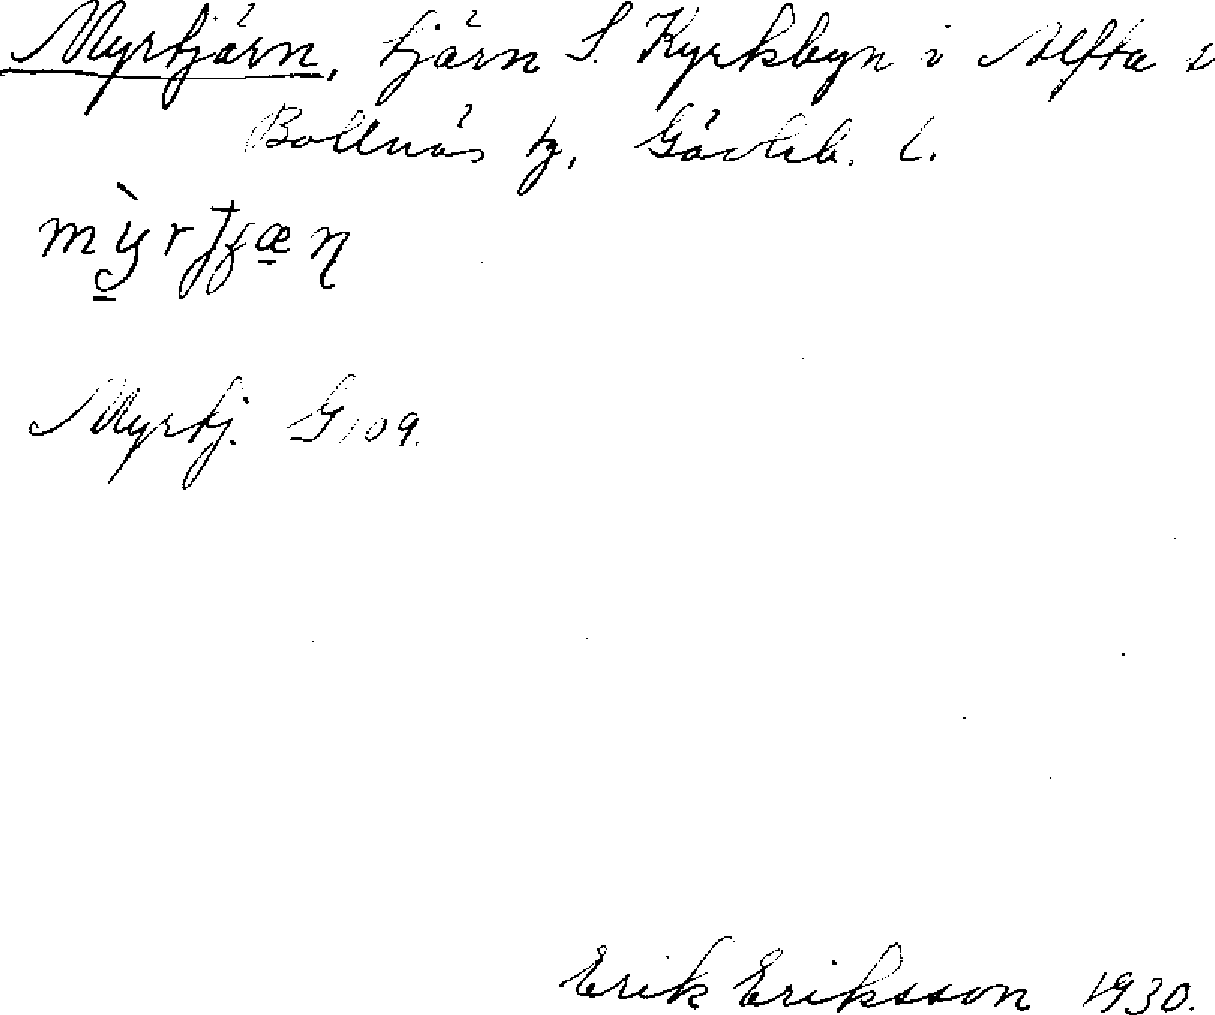 Myrtjärn, tjärn S. Kyrkbyn i Alfta s
Bollnäs tg, Gävleb. l.
Myrtj. G 109.
Erik Eriksson 1930.